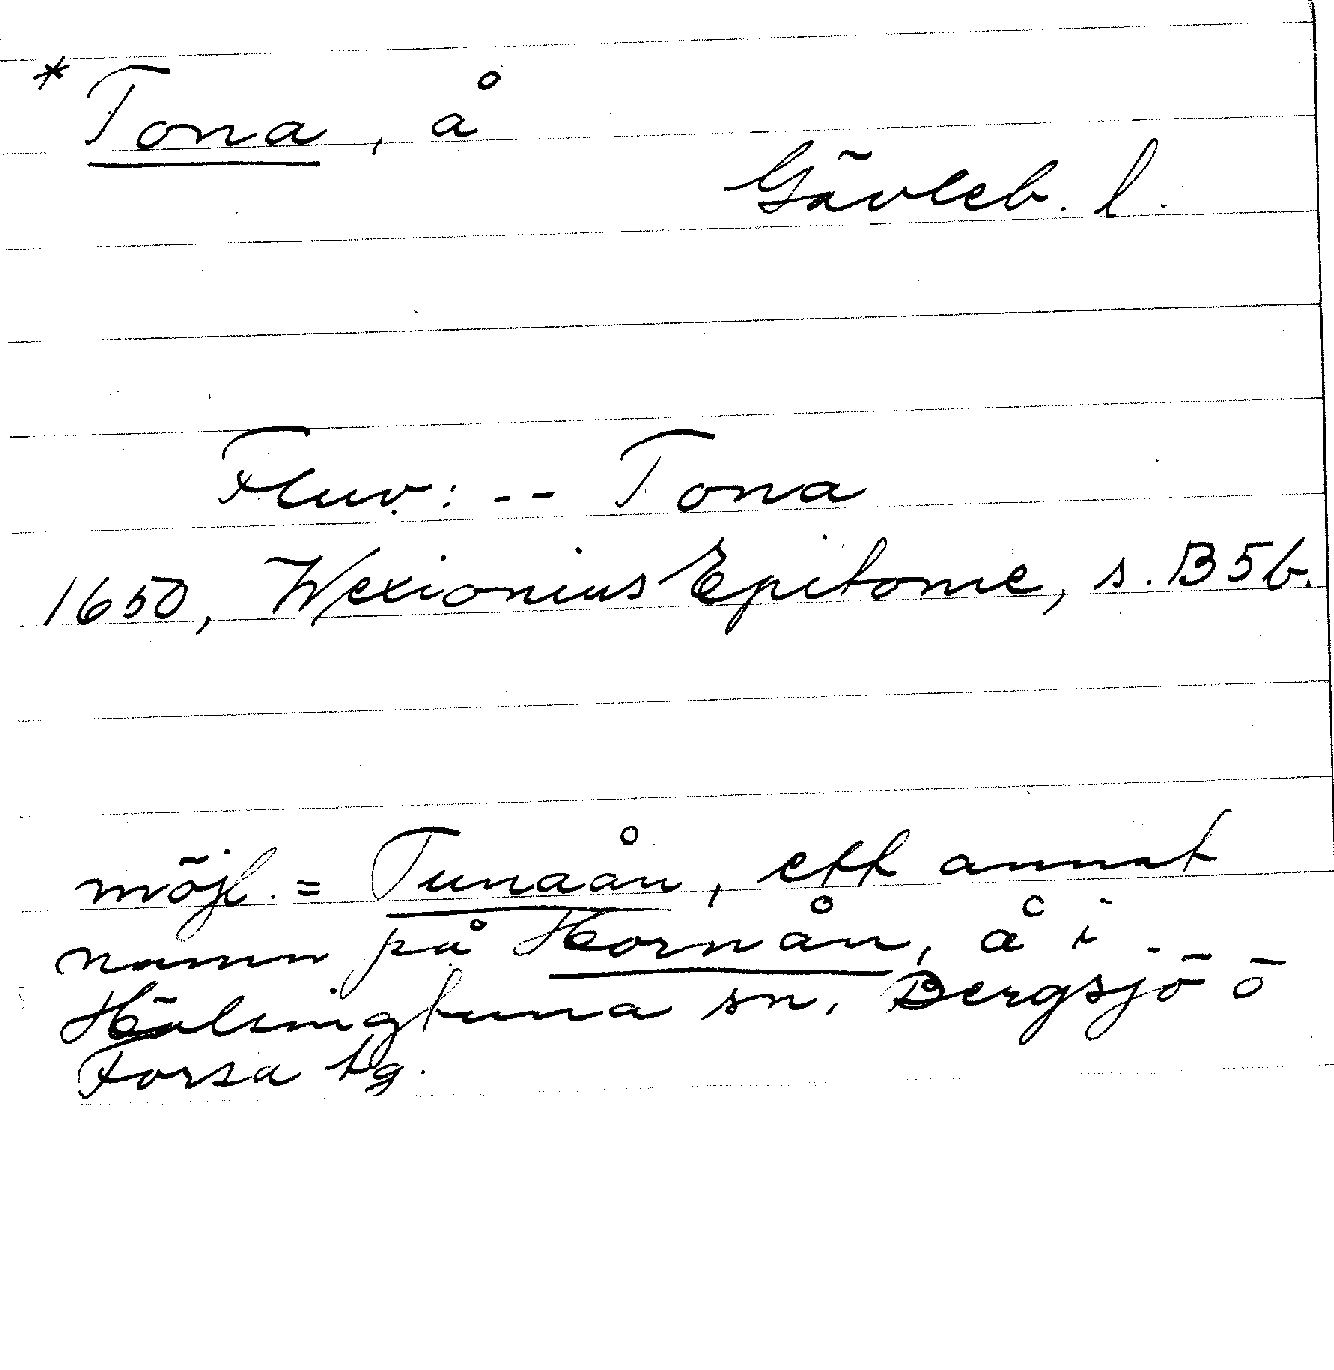 * Tona, å
Gävleb. l.
Fluv.: -- Tona
1650, Wexionius Epitome, s. B5b.
möjl. = Tunaån, ett annat
namn på Hornån, å i
Hälsingtuna sn, Bergsjö o
Forsa tg.